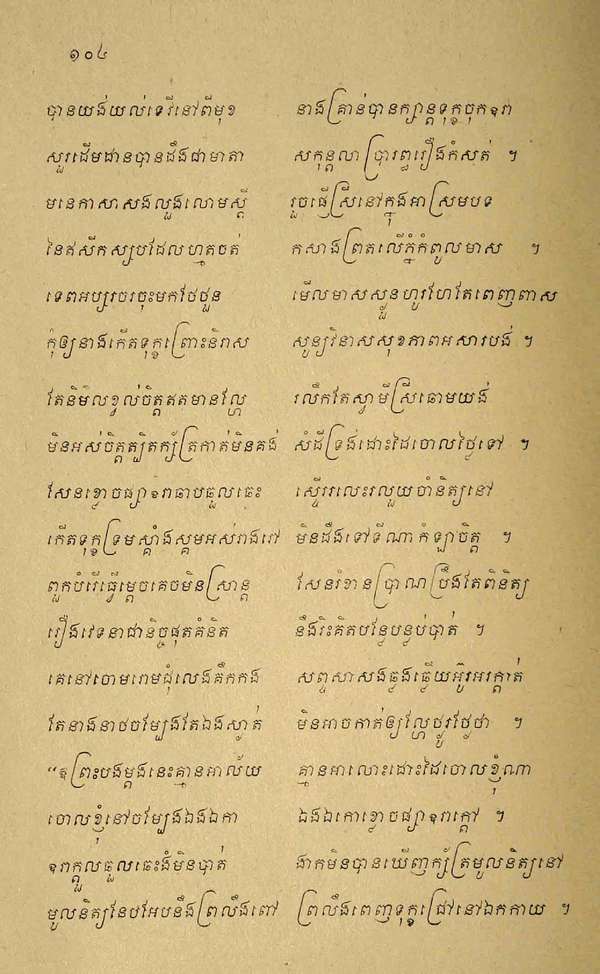 ១០៤
បានយង់យល់ទេវីនៅពីមុខ នាងគ្រាន់បានក្សាន្តទុក្ខចុកឧរា
សួរដើមដានបានដឹងជាមាតា សកុន្តលាប្រារព្ធរឿងកំសត់ ។
មនេកាសាសងលួងលោមស្តី រួចផ្ញើស្រីនៅក្នុងអាស្រមបទ
នៃឥសីកស្សបដែលហ្មតចត់ កសាងព្រតលើភ្នំកំពូលមាស ។
ទេពអប្សរចរចុះមកថែថួន មើលមាសស្ងួនហួរហែតែពេញពាស
កុំឲ្យនាងកើតទុក្ខព្រោះនិរាស សូន្យវិនាសសុខភាពអសារបង់ ។
តែនិមលខ្វល់ចិត្តឥតមានល្ហែ រលឹកតែស្វាមីស្រីឆោមយង់
មិនអស់ចិត្តត្បិតក្ស័ត្រកាត់មិនគង់ សំដីទ្រង់ដោះដៃចោលថ្ងៃទៅ ។
សែនខ្ទោចផ្សាឧរាឆាបឆួលឆេះ ស្ទើររលេះរលួយចាំនិត្យនៅ
កើតទុក្ខទ្រមស្គាំងស្គមអស់រាងរៅ មិនដឹងទៅទីណាកំឡាចិត្ត ។
ពួកបំរើធ្វើម្តេចគេចមិនស្រាន្ត សែនរំខានប្រាណប្រឹងតែពិនិត្យ
រឿងវេទនាជានិច្ចផុតគំនិត នឹងរិះគិតបន្ទែបន្ទប់បាត់ ។
គេនៅចោមរោមជុំលេងគឹកកង សព្ទសាសងឆ្លងឆ្លើយអ៊ូរអរក្តាត់
តែនាងនាថចម្បែងតែឯងស្ងាត់ មិនអាចកាត់ឲ្យល្ហែថ្លូរថ្លែថ្លា ។
“ឱព្រះបងម្តងនេះគ្មានអាល័យ គ្មានអាលោះដោះដៃចោលខ្ញុំណា
ចោលខ្ញុំនៅចម្បែងឯងឯកា ឯងឯកោខ្ទោចផ្សាឧរាក្តៅ ។
ឧរាក្តួលឆួលឆេះងំមិនបាត់ ងាកមិនបានឃើញក្ស័ត្រមូលនិត្យនៅ
មូលនិត្យនែបអែបនឹងព្រលឹងពៅ ព្រលឹងពេញទុក្ខជ្រៅនៅឯកកាយ ។